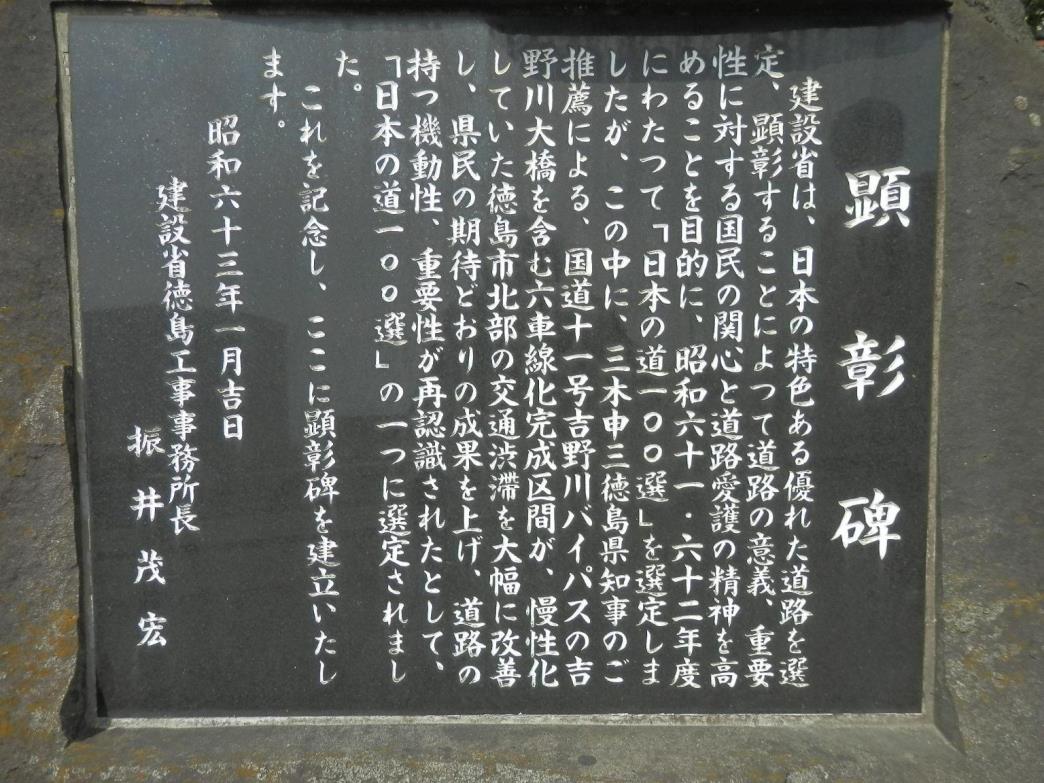 顕彰碑
建設省は、日本の特色ある優れた道路を選
定、顕彰することによつて道路の意義、重要
性に対する国民の関心と道路愛護の精神を高
めることを目的に、昭和六十一・六十二年度
にわたつて「日本の道一〇〇選」を選定しま
したが、この中に、三木申三徳島県知事のご
推薦による、国道十一号吉野川バイパスの吉
野川大橋を含む六車線化完成区間が、慢性化
していた徳島市北部の交通渋滞を大幅に改善
し、県民の期待どおりの成果を上げ、道路の
持つ機動性、重要性が再認識されたとして、
「日本の道一〇〇選」の一つに選定されまし
た。
これを記念し、ここに顕彰碑を建立いたし
ます。
昭和六十三年一月吉日
建設省徳島工事事務所長
振井茂宏